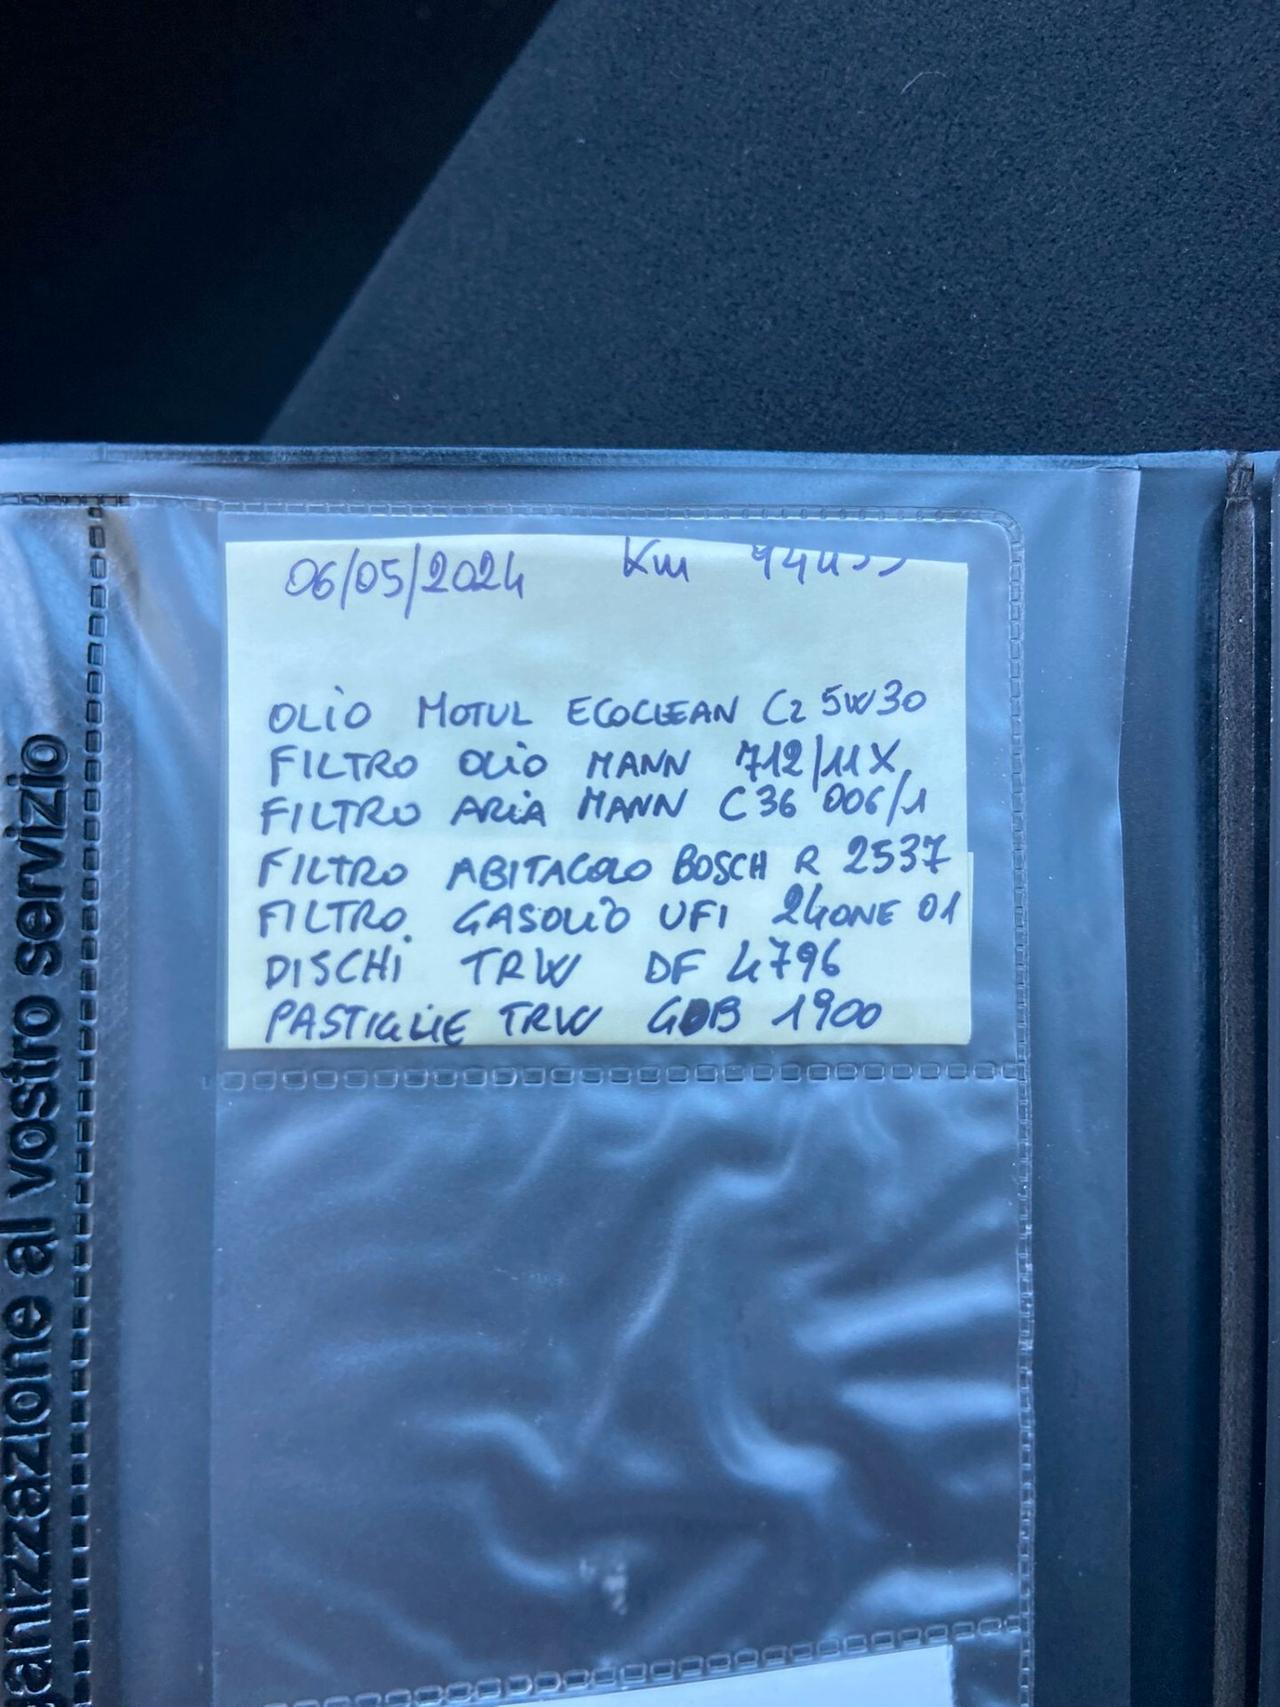 06/05/2024 Km
OLiO MOTUL ECOCLEAN C2 5W30
FILTRO OLiO MANN 712/11X
FILTRO ARiA MANN C36 006/1
FILTRO ABITACOLO BOSCH R 2537
FILTRO GASOLiO UFI 24ONE 01
DISCHi TRW DF 4796
PASTIGLIE TRW GDB 1900
anizzazione al vostro servizio